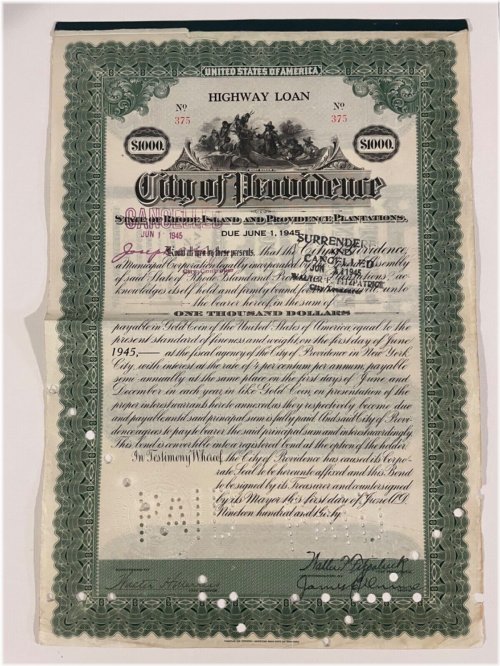 UNITED STATES OF AMERICA
HIGHWAY LOAN
No No
375 375
$1000. $1000.
City of Providence
STATE OF RHODE ISLAND AND PROVIDENCE PLANTATIONS,
CANCELLED
JUN 1 1945
DUE JUNE 1, 1945
SURRENDE
AND
CANCELLED
JUN 1945
WALTER F. FITZPATRICK
City Treasurer
Know all men by these presents, that the City of Providence,
a Municipal Corporation legally incorporated by the Assembly
of said State of Rhode Island and Plantations ac-
knowledges itself held and firmly bound unto
the bearer hereof in the sum of
ONE THOUSAND DOLLARS
payable in Gold Coin of the United States of America equal to the
present standard of fineness and weight, on the first day of June
1945,— at the fiscal agency of the City of Providence in New York
City, with interest at the rate of 4 per centum per annum, payable
semi-annually at the same place on the first days of June and
December in each year, in like Gold Coin, on presentation of the
proper interest warrants hereto annexed as they respectively become due
and payable, until said principal sum is fully paid. And said City of Provi-
dence agrees to pay to bearer the said principal sum and interest accordingly.
This bond is convertible into a registered bond at the option of the holder.
In Testimony Whereof, the City of Providence has caused its Corpo-
rate Seal to be hereunto affixed and this Bond
to be signed by its Treasurer and countersigned
by its Mayor this first day of June A.D.
Nineteen hundred and
PAI
Walter F. Fitzpatrick